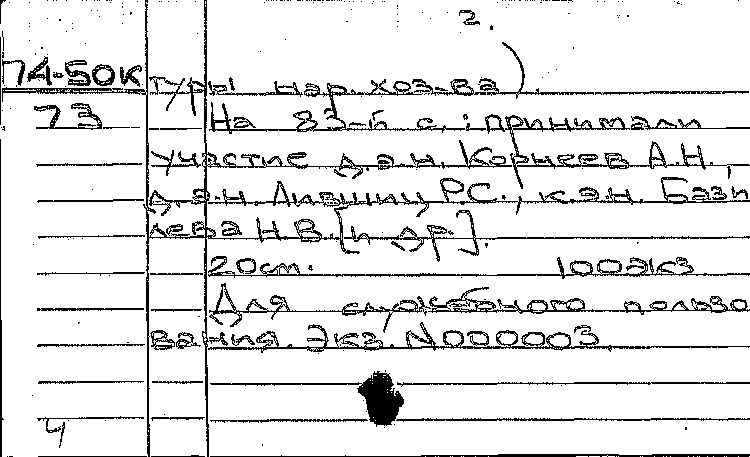 2.
74-50к туры нар. хоз-ва).
73 На 83-5 с.: принимали
участие д.э.н. Корнеев А.Н.,
д.э.н. Лившиц Р.С., к.э.н. Бази
лева Н.В. [и др].
20 см. 100 экз
Для служебного пользо
вания. Экз. N000003
4